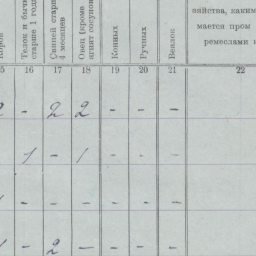 Коров
Телок и бычк
старше 1 года
Свиней старш
4 месяцев
Овец (кроме
ягнят сосунов
Конных
Ручных
Веялок
зяйства, каким
мается пром
ремеслами и
5 16 17 18 19 20 21 22
2 - 2 2 - - -
1 - 1 - - -
- - - - - -
1 - 2 - - - -